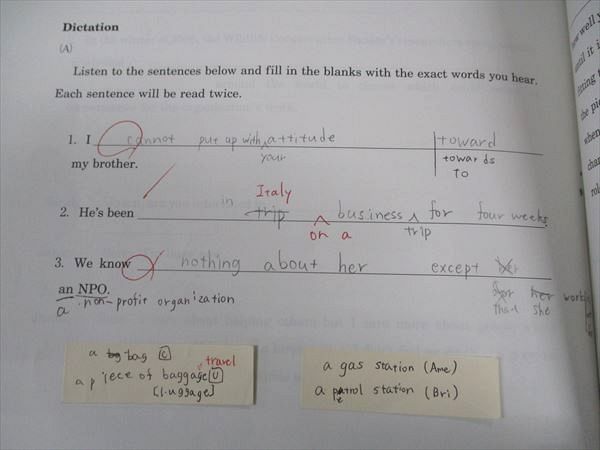 Dictation
(A)
Listen to the sentences below and fill in the blanks with the exact words you hear.
Each sentence will be read twice.
1. I cannot put up with attitude toward
your
towards
my brother.
to
Italy
2. He's been in trip business for four weeks.
on a trip
3. We know nothing about her except
an NPO.
a non-profit organization
for her work
that she
a bag C
travel
a piece of baggage U
[luggage]
a gas station (Ame)
a petrol station (Bri)